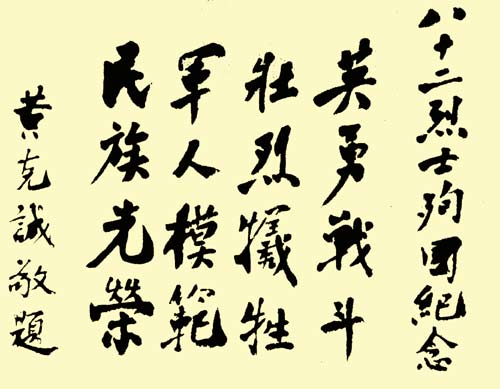 八十二烈士殉国紀念
英勇战斗
壮烈犧牲
軍人模範
民族光榮
黄克誠敬題